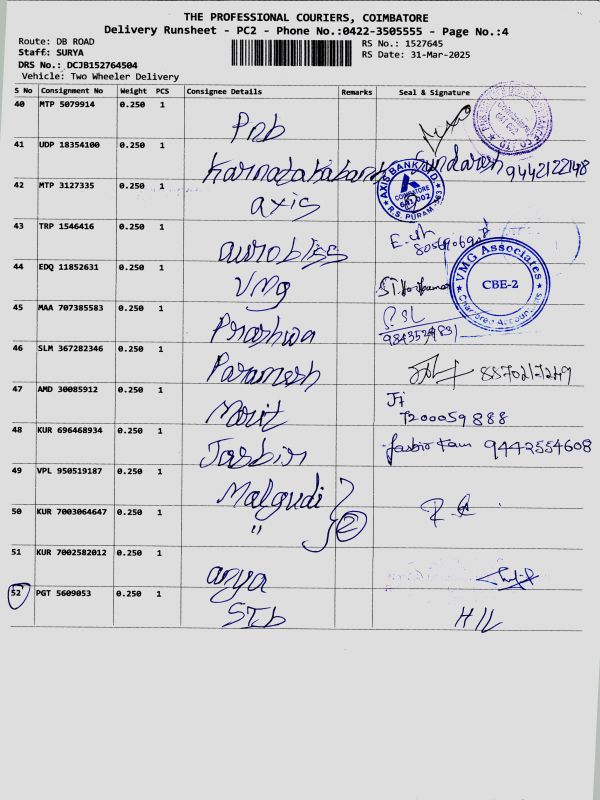 THE PROFESSIONAL COURIERS, COIMBATORE
Delivery Runsheet - PC2 - Phone No.:0422-3505555 - Page No.:4
Route: DB ROAD
RS No.: 1527645
Staff: SURYA
RS Date: 31-Mar-2025
DRS No.: DCJB152764504
Vehicle: Two Wheeler Delivery
S No Consignment No Weight PCS Consignee Details Remarks Seal & Signature
40 MTP 5079914 0.250 1 Pnb
41 UDP 18354100 0.250 1 Karnatakabank Sundaresh 9442122148
42 MTP 3127335 0.250 1 axis
AXIS BANK LTD
COIMBATORE
641 002
R.S. PURAM
43 TRP 1546416 0.250 1 aurobliss
44 EDQ 11852631 0.250 1 VMG
VMG Associates
CBE-2
Chartered Accountants
45 MAA 707385583 0.250 1 Prashwa
46 SLM 367282346 0.250 1 Paramesh
47 AMD 30085912 0.250 1 Ji
7200059888
48 KUR 696468934 0.250 1 Jasbir 9442554608
49 VPL 950519187 0.250 1 Malgudi
50 KUR 7003064647 0.250 1 " 2
51 KUR 7002582012 0.250 1 arya
52 PGT 5609053 0.250 1 STb HIL